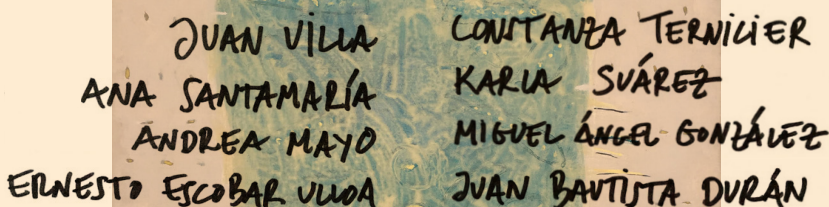 JUAN VILLA
ANA SANTAMARÍA
ANDREA MAYO
ERNESTO ESCOBAR ULLOA
CONSTANZA TERNICIER
KARLA SUÁREZ
MIGUEL ÁNGEL GONZÁLEZ
JUAN BAUTISTA DURÁN